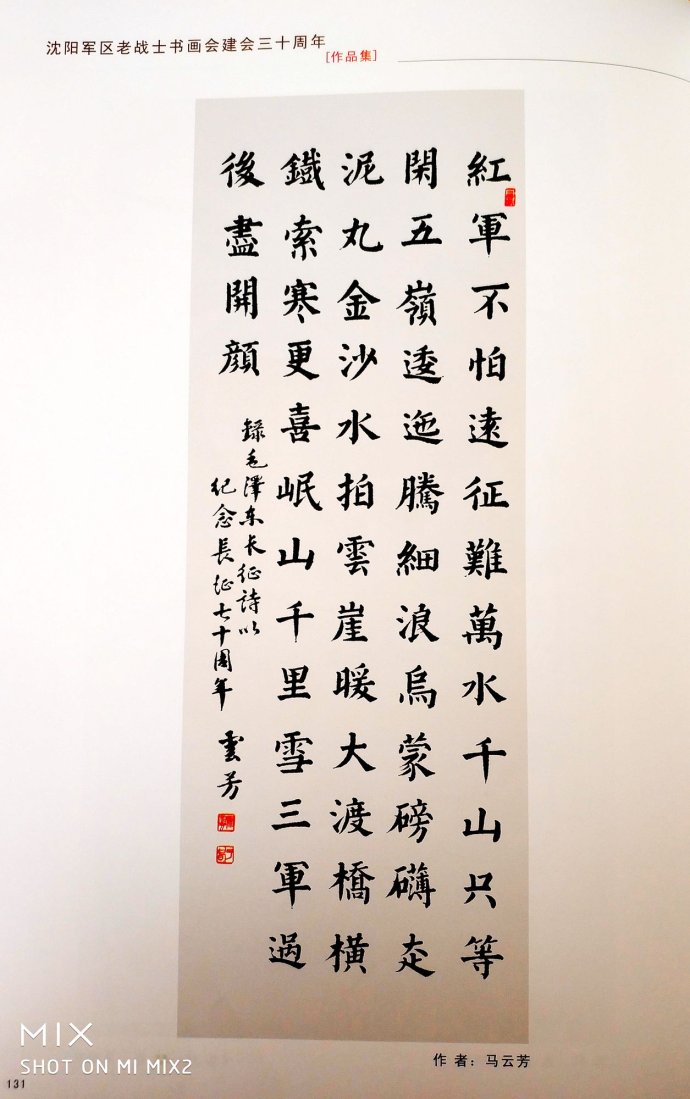 沈阳军区老战士书画会建会三十周年
[作品集]
紅軍不怕遠征難萬水千山只等
閑五嶺逶迤騰細浪烏蒙磅礴走
泥丸金沙水拍雲崖暖大渡橋橫
鐵索寒更喜岷山千里雪三軍過
後盡開顏
錄毛澤东长征詩以
纪念長征七十周年
雲芳
作 者：马云芳
MIX
SHOT ON MI MIX2
131